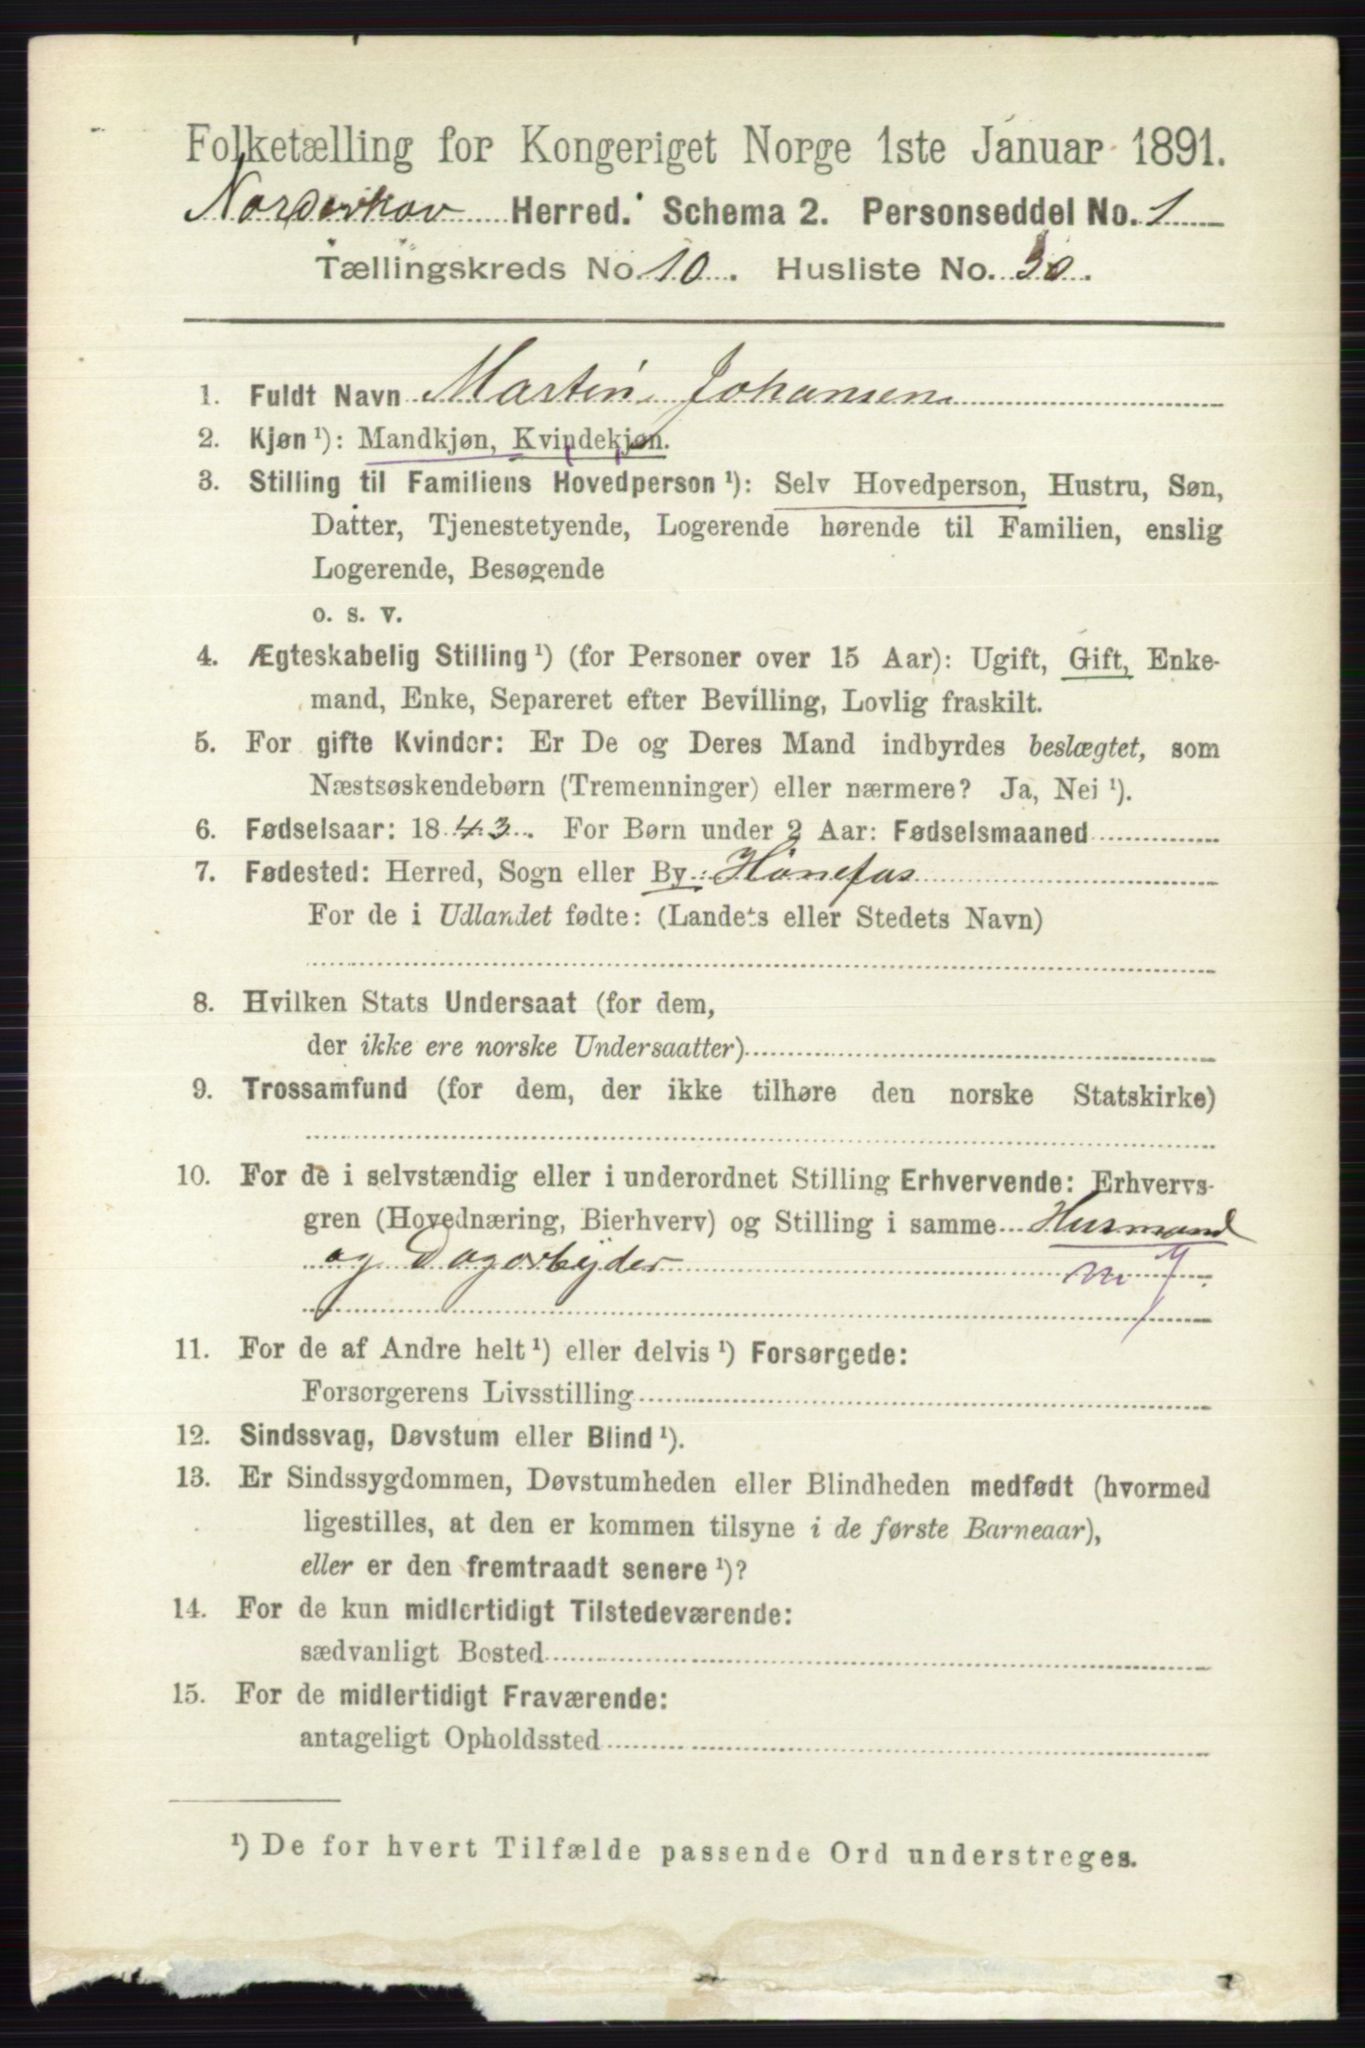 Folketælling for Kongeriget Norge 1ste Januar 1891.
Norderhov Herred. Schema 2. Personseddel No. 1
Tællingskreds No. 10. Husliste No. 30.
1. Fuldt Navn Martin Johansen
2. Kjøn ¹): Mandkjøn, Kvindekjøn.
3. Stilling til Familiens Hovedperson ¹): Selv Hovedperson, Hustru, Søn,
Datter, Tjenestetyende, Logerende hørende til Familien, enslig
Logerende, Besøgende
o. s. v.
4. Ægteskabelig Stilling ¹) (for Personer over 15 Aar): Ugift, Gift, Enke-
mand, Enke, Separeret efter Bevilling, Lovlig fraskilt.
5. For gifte Kvinder: Er De og Deres Mand indbyrdes beslægtet, som
Næstsøskendebørn (Tremenninger) eller nærmere? Ja, Nei ¹).
6. Fødselsaar: 1843. For Børn under 2 Aar: Fødselsmaaned
7. Fødested: Herred, Sogn eller By: Hønefos
For de i Udlandet fødte: (Landets eller Stedets Navn)
8. Hvilken Stats Undersaat (for dem,
der ikke ere norske Undersaatter)
9. Trossamfund (for dem, der ikke tilhøre den norske Statskirke)
10. For de i selvstændig eller i underordnet Stilling Erhvervende: Erhvervs-
gren (Hovednæring, Bierhverv) og Stilling i samme Husmand
og Dagarbejder
11. For de af Andre helt ¹) eller delvis ¹) Forsørgede:
Forsørgerens Livsstilling
12. Sindssvag, Døvstum eller Blind ¹).
13. Er Sindssygdommen, Døvstumheden eller Blindheden medfødt (hvormed
ligestilles, at den er kommen tilsyne i de første Barneaar),
eller er den fremtraadt senere ¹)?
14. For de kun midlertidigt Tilstedeværende:
sædvanligt Bosted
15. For de midlertidigt Fraværende:
antageligt Opholdssted
¹) De for hvert Tilfælde passende Ord understreges.